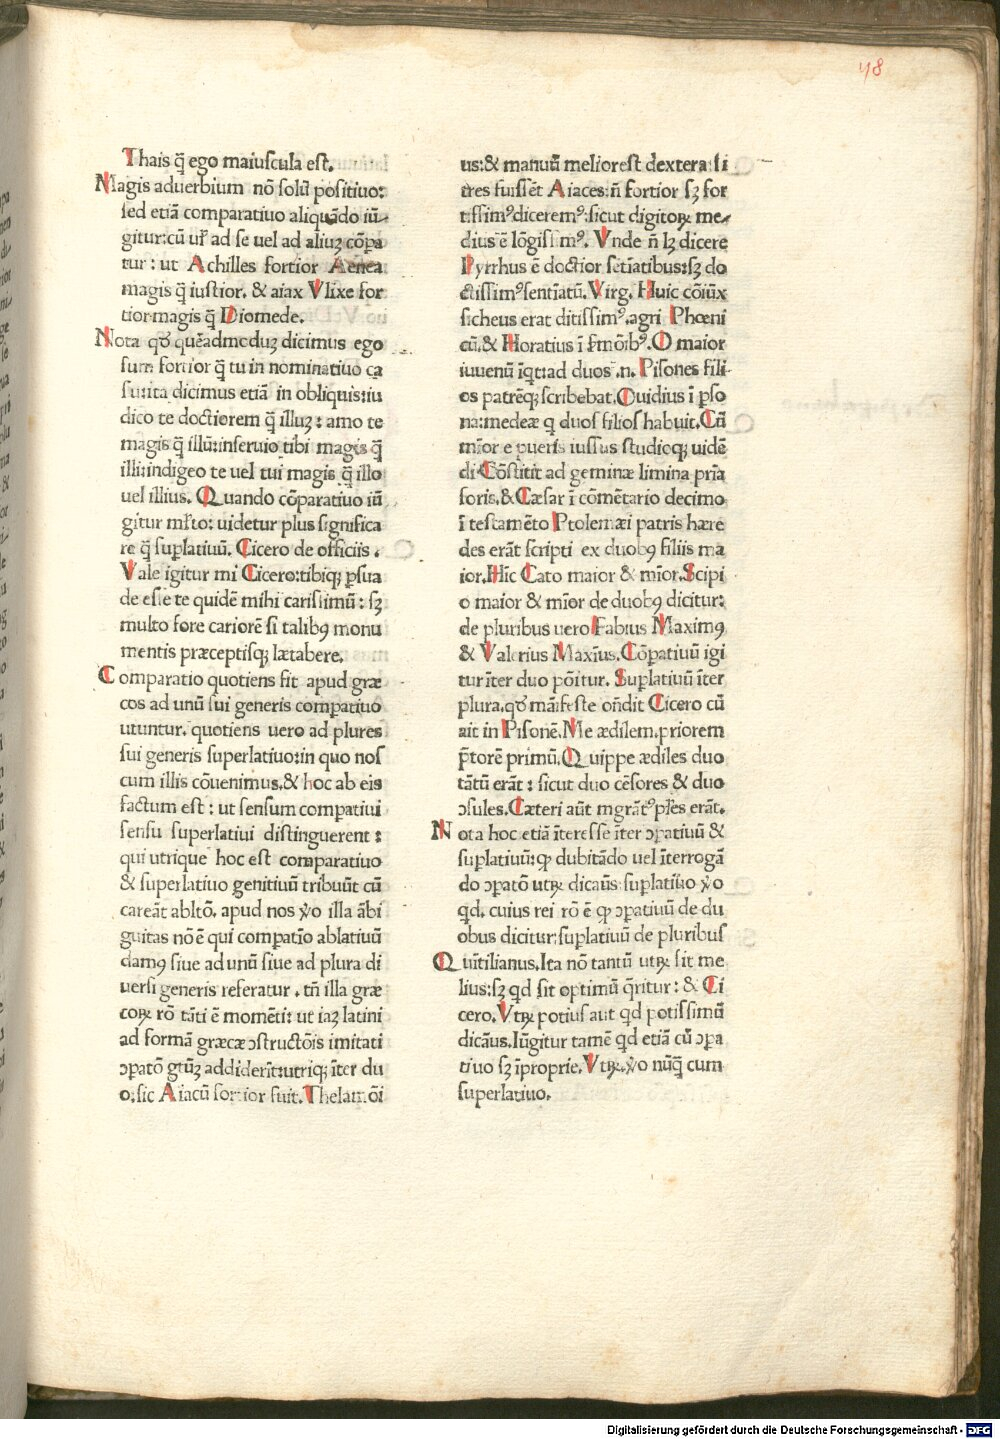 48
Thais q̄ ego maiuscula est.
Magis aduerbium nō solū positiuo:
sed etiā comparatiuo aliquādo iū-
gitur:cū ur̄ ad se uel ad aliuꝫ cōpa
tur: ut Achilles fortior Aenea
magis q̄ iustior. & aiax Vlixe for
tior magis q̄ Diomede.
Nota qđ quēadmoduꝫ dicimus ego
sum fortior q̄ tu in nominatiuo ca
su:ita dicimus etiā in obliquis:iu
dico te doctiorem q̄ illuꝫ: amo te
magis q̄ illū:inseruio tibi magis q̄
illi:indigeo te uel tui magis q̄ illo
uel illius. Quando cōparatiuo iū
gitur mr̄to: uidetur plus significa
re q̄ suplatiuū. Cicero de officiis.
Vale igitur mi Cicero:tibiqꝫ psua
de esse te quidē mihi carissimū: sꝫ
multo fore cariorē si talibꝯ monu
mentis præceptisqꝫ lætabere.
Comparatio quotiens fit apud græ
cos ad unū sui generis compatiuo
utuntur. quotiens uero ad plures
sui generis superlatiuo:in quo nos
cum illis cōuenimus.& hoc ab eis
factum est: ut sensum compatiui
sensu superlatiui distinguerent:
qui utrique hoc est comparatiuo
& superlatiuo genitiuū tribuūt cū
careāt abltō. apud nos v̊o illa ābi
guitas nō ē qui compatīo ablatiuū
damꝯ siue ad unū siue ad plura di
uersi generis referatur. tn̄ illa græ
coꝝ rō tāti ē momēti: ut iaꝫ latini
ad formā græcæ ↄstructōis imitati
ↄpatō gtūꝫ addiderīt:utriqꝫ īter du
o.sic Aiacū fortior fuit. Thelamōi
us:& manuū melior est dextera:si
tres fuissēt Aiaces:n̄ fortior sꝫ for
tissimꝰ dicēremꝰ:sicut digitoꝝ me-
dius ē lōgissimꝰ. Vnde n̄ lꝫ dicere
Pyrrhus ē doctior sētiatibus:sꝫ do
ctissimꝰ sentiatū. Virg. Huic cōiūx
sicheus erat ditissimꝰ.agri Phœni
cū.& Horatius ī smōibꝰ. O maior
iuuenū īqt:ad duos .n. Pisones fili-
os patrēqꝫ scribebat. Ouidius ī pso
na:medeæ q duos filios habuit. Cū
mīor e pueris iussus studioqꝫ uidē
di Cōstitit ad geminæ limina prīa
foris.& Cæsar ī cōmētario decimo
ī testamēto Ptolemæi patris hære
des erāt scripti ex duobꝯ filiis ma
ior.Hic Cato maior & mīor.Scipi
o maior & mīor de duobꝯ dicitur:
de pluribus uero Fabius Maximꝯ
& Valerius Maxīus. Cōpatiuū igi
tur īter duo pōitur. Suplatiuū īter
plura.qđ māifeste oñdit Cicero cū
ait in Pisonē. Me ædilem.priorem
p̄torē primū. Quippe ædiles duo
tātū erāt: sicut duo cēsores & duo
ↄsules. Cæteri aūt mgrātꝰ pl̄es erāt.
Nota hoc etiā īteresse īter ↄpatiuū &
suplatiuū:qꝫ dubitādo uel īterrogā
do ↄpatō utꝝ dicaūs:suplatiuo v̊o
qd. cuius rei rō ē qꝫ ↄpatiuū de du
obus dicitur:suplatiuū de pluribus
Quītilianus.Ita nō tantū utꝝ sit me
lius:sꝫ qd sit optimū q̄ritur: & Ci
cero. Vtꝝ potius aut qd potissimū
dicāus. Iūgitur tamē qd etiā cū ↄpa
tiuo sꝫ īproprie. Vtꝝ.v̊o nūq̄ cum
superlatiuo.
Digitalisierung gefördert durch die Deutsche Forschungsgemeinschaft - DFG